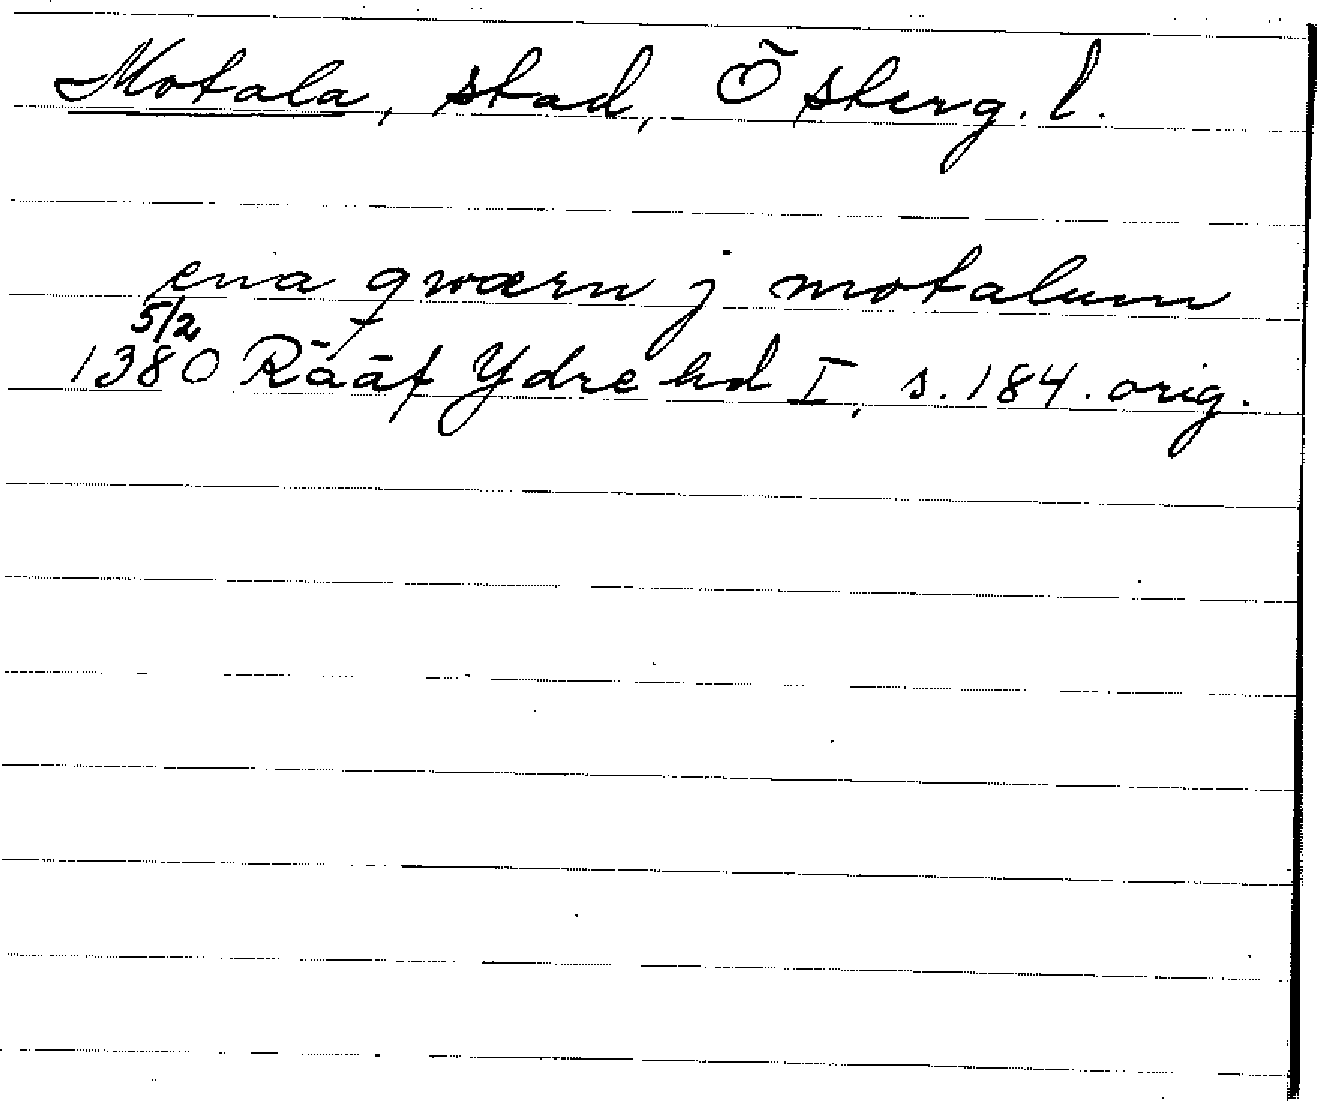 Motala, stad, Österg. l.
ena qwærn j motalum
5/2
1380 Rääf Ydre hd I, s. 184. orig.